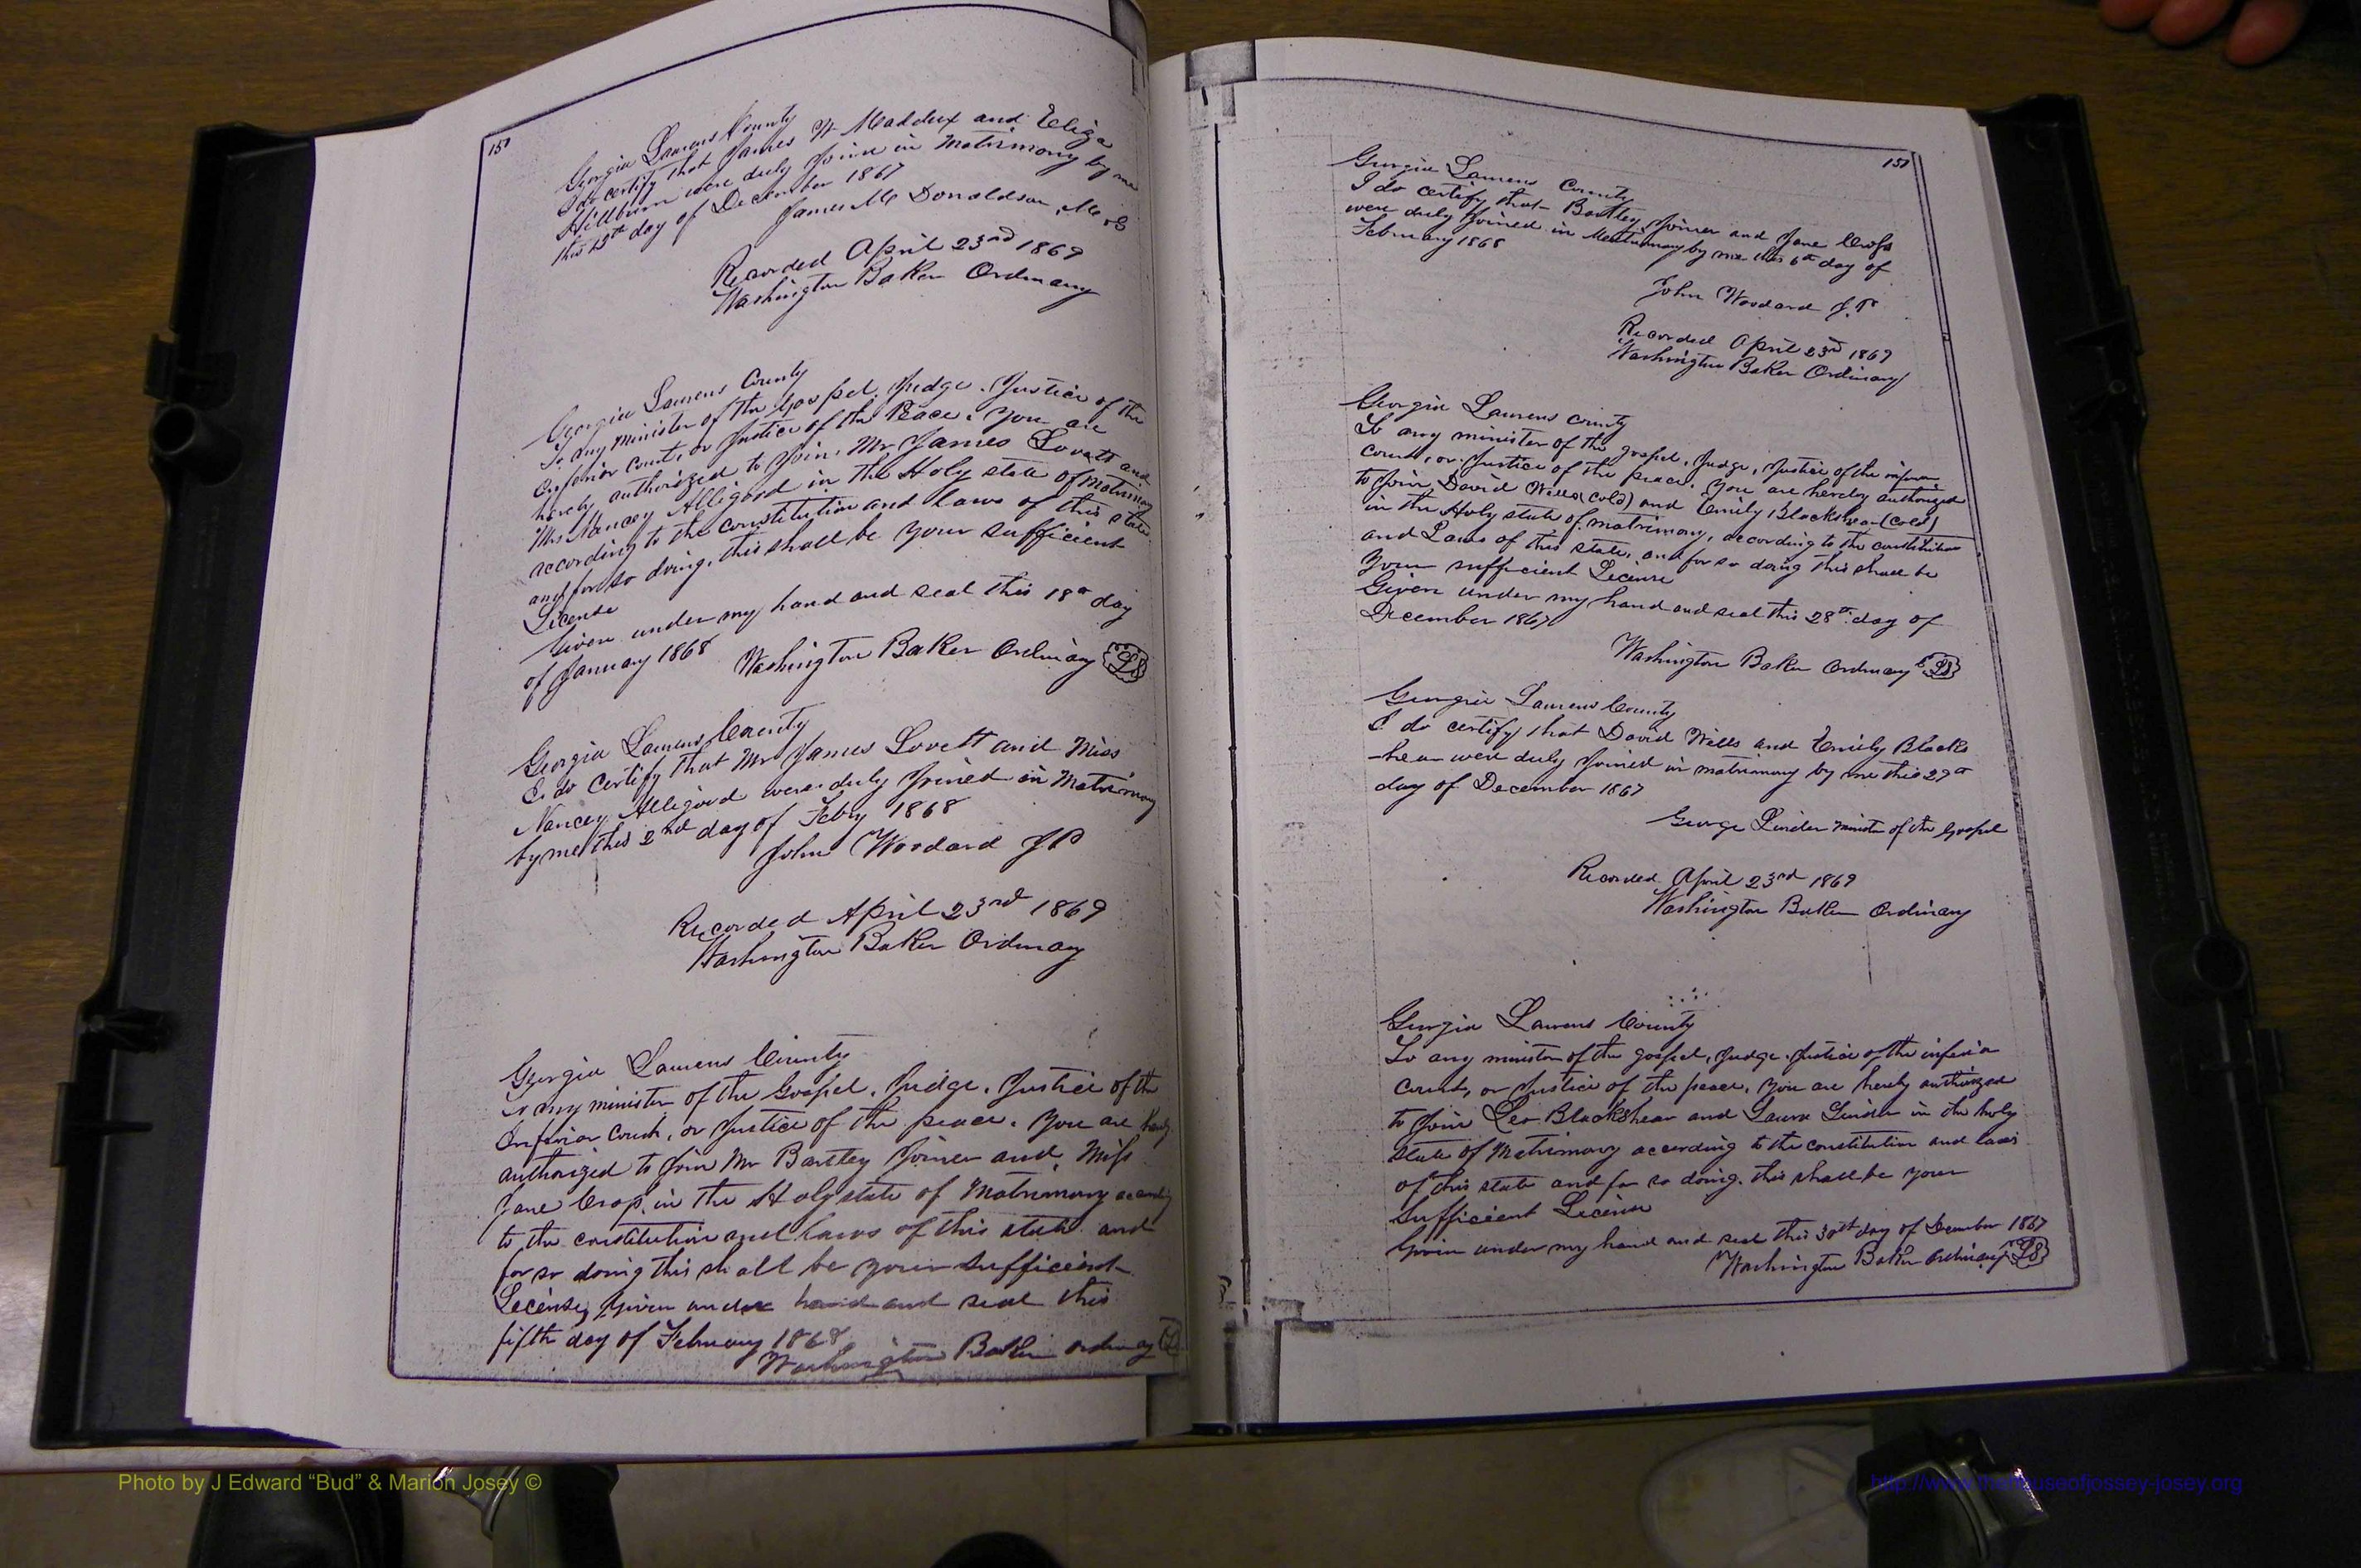 Georgia Laurens County
I do certify that James W Maddux and Eliza
Hillburn were duly Joind in Matrimony by me
this 15th day of December 1867
James M Donaldson, M. G
Recorded April 23rd 1869
Washington Baker Ordinary
Georgia Laurens County
To any Minister of the Gospel, Judge, Justice of the
Inferior Court, or Justice of the Peace. You are
hereby authorized to Join Mr James Lovett and
Mrs Nancey Alligood in the Holy state of Matrimony
according to the constitution and Laws of this state
and for so doing, this shall be your sufficient
License
Given under my hand and seal this 18th day
of January 1868
Washington Baker Ordinary LS
Georgia Laurens County
I do certify that Mr James Lovett and Miss
Nancey Alligood were duly Joined in Matrimony
by me this 2nd day of Feby 1868
John Woodard JP
Recorded April 23rd 1869
Washington Baker Ordinary
Georgia Laurens County
To any minister of the Gospel, Judge, Justice of the
Inferior Court, or Justice of the peace. You are hereby
authorized to Join Mr Bartley Joiner and Miss
Jane Crop in the Holy state of Matrimony according
to the constitution and Laws of this state and
for so doing this shall be your sufficient
License, given under hand and seal this
fifth day of February 1868
Washington Baker ordinary
151
Georgia Laurens County
I do certify that Bartley Joiner and Jane
were duly Joined in Matrimony by me this 6th day of
February 1868
John Woodard J.P
Recorded April 23rd 1869
Washington Baker Ordinary
Georgia Laurens county
To any minister of the gospel, Judge, Justice of the inferior
court, or Justice of the peace. You are hereby authorized
to Join David Wells (cold) and Emily Blackshear (cold)
in the Holy state of matrimony, according to the constitution
and Laws of this state, and for so doing this shall be
Your sufficient License
Given under my hand and seal this 28th day of
December 1867
Washington Baker Ordinary LS
Georgia Laurens County
I do certify that David Wells and Emily Blacks
-hear were duly Joined in matrimony by me this 29th
day of December 1867
George Linder minister of the Gospel
Recorded April 23rd 1869
Washington Baker Ordinary
Georgia Laurens County
To any minister of the gospel, Judge, Justice of the inferior
Court, or Justice of the peace, You are hereby authorized
to Join Leo Blackshear and Laura Linder in the holy
state of Matrimony according to the constitution and laws
of this state and for so doing this shall be your
Sufficient License
Given under my hand and seal this 30th day of December 1867
Washington Baker ordinary LS
Photo by J Edward “Bud” & Marion Josey ©
http://www.thehouseofjossey-josey.org